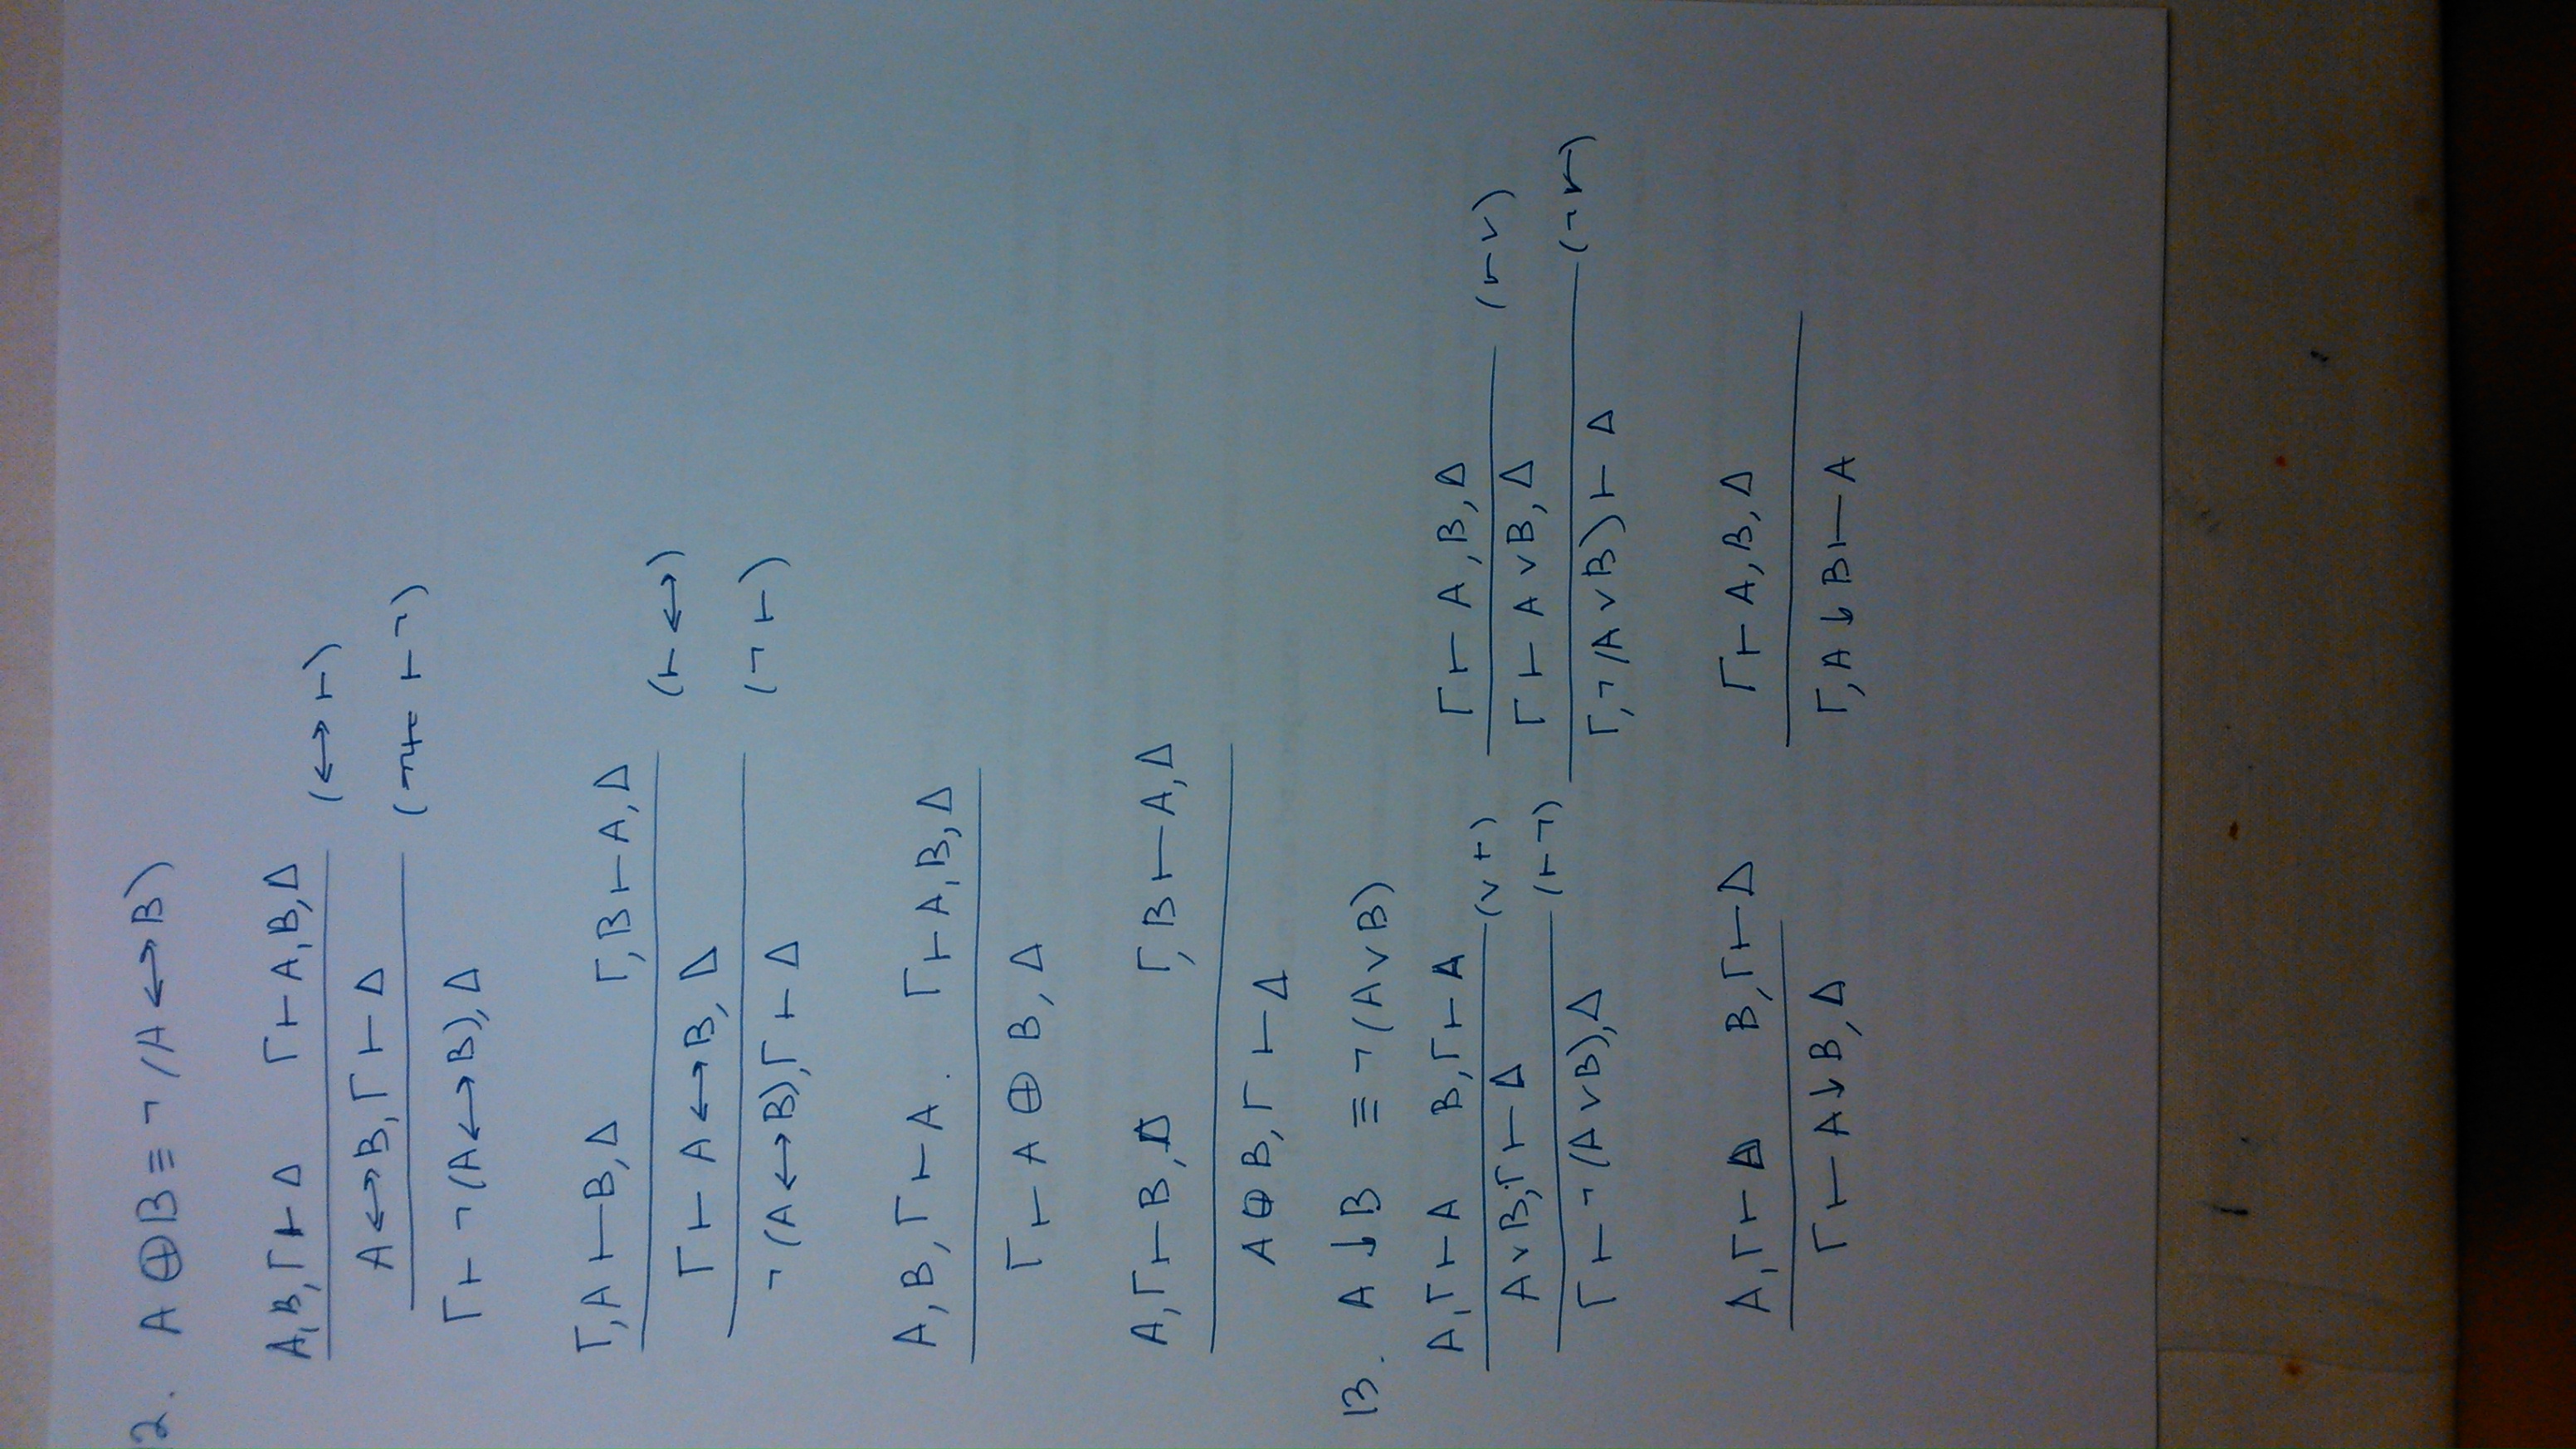 12. A ⊕ B ≡ ¬(A ↔ B)
A, B, Γ ⊢ Δ    Γ ⊢ A, B, Δ
(↔ ⊢)
A ↔ B, Γ ⊢ Δ
(⊢ ¬)
Γ ⊢ ¬(A ↔ B), Δ
Γ, A ⊢ B, Δ    Γ, B ⊢ A, Δ
(⊢ ↔)
Γ ⊢ A ↔ B, Δ
(¬ ⊢)
¬(A ↔ B), Γ ⊢ Δ
A, B, Γ ⊢ Δ.    Γ ⊢ A, B, Δ
Γ ⊢ A ⊕ B, Δ
A, Γ ⊢ B, Δ    Γ, B ⊢ A, Δ
A ⊕ B, Γ ⊢ Δ
13. A ↓ B ≡ ¬(A ∨ B)
A, Γ ⊢ Δ    B, Γ ⊢ Δ
(∨ ⊢)
A ∨ B, Γ ⊢ Δ
(⊢ ¬)
Γ ⊢ ¬(A ∨ B), Δ
Γ ⊢ A, B, Δ
(⊢ ∨)
Γ ⊢ A ∨ B, Δ
(¬ ⊢)
Γ, ¬(A ∨ B) ⊢ Δ
A, Γ ⊢ Δ    B, Γ ⊢ Δ
Γ ⊢ A ↓ B, Δ
Γ ⊢ A, B, Δ
Γ, A ↓ B ⊢ Δ